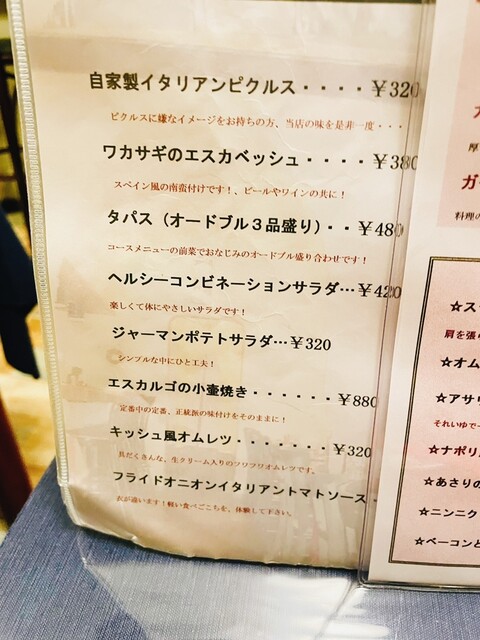 自家製イタリアンピクルス・・・・￥320
ピクルスに嫌なイメージをお持ちの方、当店の味を是非一度・・・
ワカサギのエスカベッシュ・・・・￥380
スペイン風の南蛮付けです！、ビールやワインの共に！
タパス（オードブル３品盛り）・・￥480
コースメニューの前菜でおなじみのオードブル盛り合わせです！
ヘルシーコンビネーションサラダ…￥420
楽しくて体にやさしいサラダです！
ジャーマンポテトサラダ…￥320
シンプルな中にひと工夫！
エスカルゴの小壷焼き・・・・・・￥880
定番中の定番、正統派の味付けをそのままに！
キッシュ風オムレツ・・・・・・・￥320
具だくさんな、生クリーム入りのフワフワオムレツです。
フライドオニオンイタリアントマトソース・
衣が違います！軽い食べごこちを、体験して下さい。
厚
ガ
料理の
☆ス
肩を張ら
☆オム
☆アサリ
それいゆで一
☆ナポリ
☆あさりの
☆ニンニク
☆ベーコンと